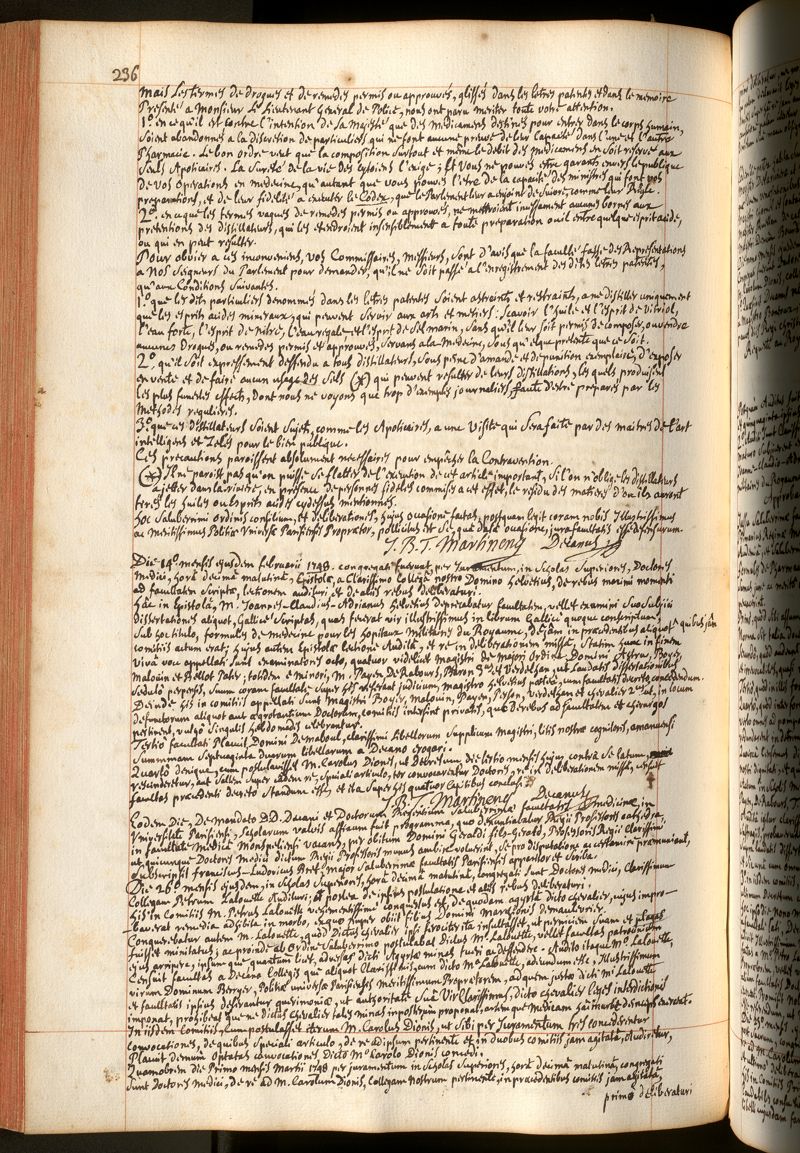 236
mais les termes de drogues et de remedes permis ou approuvés, glissés dans les letres patentes et dans le memoire
Presenté a Monsieur Le Lieutenant General de Police, nous ont paru meriter toute votre attention.
1.° en ce qu'il est contre l'intention de sa Majesté que des medicamens destinés pour entrer dans le corps humain,
soient abandonnés a la discretion de particuliers qui ne font aucune preuve de leur capacité dans l'une et l'autre
Pharmacie. Le bon ordre veut que la composition surtout et même le debit des medicamens en soit reservé aux
seuls Apoticaires. La sureté de la vie des citoiens l'exige; et vous ne pouvés etre garants envers le publique
de vos operations en medecine, qu'autant que vous pouvés l'etre de la capacité des ministres qui font vos
preparations, et de leur fidelité a executer le Codex, que le Parlement leur a enjoint de suivre, comme leur Regle.
2.° en ce que les termes vagues de remedes permis ou approuvés, ne mettroient aucunes bornes aux
pretentions des distillateurs, qui les etendroient insensiblement a toute preparation ou il entre quelque esprit acide,
ou qui en peut resulter.
Pour obvier a ces inconveniens, vos Commissaires, Messieurs, sont d'avis que la faculté fasse des Representations
a Nos Seigneurs du Parlement pour demander, qu'il ne soit passé a l'enregistrement des dites letres patentes,
qu'aux Conditions suivantes.
1.° que les dits particuliers denommés dans les letres patentes soient astraints et restraints, a ne distiller uniquement
que les esprits acides mineraux, qui peuvent servir aux arts et metiers: scavoir l'huile et l'esprit de vitriol,
l'eau forte, l'esprit de nitre, l'eau regale et l'esprit de sel marin, sans qu'il leur soit permis de composer, ou vendre
aucunes Drogues, ou remedes permis et approuvés, servans a la Medecine, sous quelque pretexte que ce soit.
2.° qu'il soit expressement deffendu a tous distillateurs, sous peine d'amande et de punition exemplaire, d'exposer
en vente et de faire aucun usage des sels (*) qui peuvent resulter de leurs distillations, les quels produisent
les plus funestes effects, dont nous ne voyons que trop d'exemples journaliers, faute d'estre preparés par les
Methodes regulieres.
3.° que ces distillateurs soient sujets, comme les Apoticaires, a une visite qui sera faite par des maitres de l'art
intelligens et zelés pour le bien publique.
Ces precautions paroissent absolument necessaires pour empêcher la Contravention.
(*) Il ne paroist pas qu'on puisse se flatter de l'execution de cet article important, si l'on n'oblige les distillateurs
a jetter dans la riviere, en presence de personnes fideles commises a cet effet, le residu des matieres d'ou ils auront
tirés les huiles ou esprits acides cydessus mentionnés.
Hoc saluberrimi ordinis consilium, et deliberationes, hujus occasione factas, postquam legit coram nobis Illustrissimus
ac meritissimus Politiæ Universæ Parisiensis Proprætor, pollicitus est se, quâ datâ occasione, jura facultatis esse defensurum.
J. B. T. Martinenq Decanus
Die 14.ª mensis ejusdem februarii 1748. congregati fuerunt per Juramentum, in Scholas Superiores, Doctores
Medici, horâ decimâ matutinâ, Epistolæ, a Clarissimo Collegâ nostro Domino Helvetius, de rebus maximi momenti
ad facultatem scriptæ, lectionem audituri, et de aliis rebus deliberaturi.
Hac in Epistolâ, M. Joannes-Claudius-Adrianus Helvetius deprecabatur facultatem, vellet examini suo subjici
dissertationes aliquot, Gallicè scriptas, quas fecerat vir illustrissimus in librum Gallicè quoque conscriptum
sub hoc titulo, formules de medecine pour les hopitaux militaires du Royaume, de quibus jàm in præcedentibus aliquot
comitiis actum erat; hujus autem Epistolæ lectione auditâ, et re in deliberationem missâ, statim hunc in finem
vivâ voce appellati sunt examinatores octo, quatuor videlicet magistri de majori ordine Domini Astruc, Boyer,
Malouin et Bellot Pater; totidem e minori, M. Payen de Rabours, Person et Verdelhan, ut laudatis dissertationibus
sedulò perpensis, suum coram facultate super his referant judicium, magistro Helvetius posteà, cum facultatis decreto concedendum.
Deinde his in comitiis appellati sunt Magistri Boyer, Malouin, Payen, Person, Verdelhan et Chevalier 2us, ut, in locum
defunctorum aliquot aut ægrotantium Doctorum, comitiis intersint privatis, quæ de rebus ad facultatem et chirurgos
pertinent, vulgò singulis hebdomadis celebrantur.
Tertiò facultati placuit, Domini Demaboul, clarissimi libellorum supplicum Magistri, litis nostræ cognitoris, amanuensi
summam septuaginta duarum libellarum a Decano erogari.
Quartò denique, cum postulavisset M. Carolus Dionis, ut decretum die tertio mensis hujus contrà se latum,
rescinderetur, aut saltem super eâdem re, speciali articulo, ter convocarentur Doctores, re in deliberationem missâ, censuit
facultas præcedenti decreto standum esse, et ita super his quatuor capitibus conclusi.
J. B. T. Martinenq Decanus
Eodem Die, De Mandato D.D. Decani et Doctorum Præsentium saluberrimæ facultatis medicinæ in
Universitate Parisiensi, Scholarum valvis affixum fuit programma, quo denuntiabatur Regii Professoris cathedra,
in facultate Medicâ Monspeliensi vacare, per obitum Domini Geraldi fitz-Gerald, Professoris Regii clarissimi
ut, quicumque Doctores Medici dictum Regii Professoris munus ambire voluerint, se pro disputatione ac certamine præmuniant,
subscripsit franciscus-Ludovicus Bret, major saluberrimæ facultatis Parisiensis apparitor et Scriba.
Die 26.ª mensis ejusdem, in Scholas Superiores, horâ decimâ matutinâ, congregati sunt Doctores Medici, Clarissimum
Collegam Petrum Lalouette audituri, et posteà de ipsius postulatione et aliis rebus deliberaturi.
His in Comitiis M. Petrus Lalouette vehementissimè conquestus est, de quodam agyrtâ dicto chevalier, cujus impro-
baverat remedia adhibita in morbo, ex quo nuper obiit filius Domini Marchionis Demaulevrier.
Conquerebatur autem M. Lalouette, quod Dictus chevalier ipsi ferociter ità insultasset, ut perniciem suam et plagas
fuisset minitatus; ac proinde ab Ordine Saluberrimo postulabat Dictus M. Lalouette, vellet facultas patrocinium
ejus arripere, ipsumque quantùm licet, adversùs dicti Agyrtæ minas tueri ac deffendere. Audito itaque M. Lalouette,
Censuit facultas a Decano Collegisque aliquot Clarissimis, cum dicto M. Lalouette, adeundum esse, Illustrissimum
virum Dominum Berryer, Politiæ universæ Parisiensis meritissimum Proprætorem, ad quem justæ dicti M. Lalouette
et facultatis ipsius deferantur querimoniæ, ut autoritate suâ Vir Clarissimus, dicto chevalier leges interdictionis
imponat, prohibeatque ne dictus chevalier tales minas imposterùm proponat, artemque medicam haud imbutus disciplinis exerceat.
In iisdem Comitiis, Cum postulasset iterum M. Carolus Dionis, ut sibi per juramentum tres concederentur
convocationes, de quibus speciali articulo, de re ad ipsum pertinente et in duobus comitiis jam agitatâ, audiretur,
Placuit Demum optatas convocationes, Dicto M. Carolo Dionis concedi.
Quamobrem die Primo mensis Martii 1748 per juramentum in Scholas Superiores, horâ decimâ matutinâ, congregati
sunt Doctores Medici, de re ad M. Carolum Dionis, Collegam nostrum pertinente, in præcedentibus comitiis jam agitatâ,
primo deliberaturi